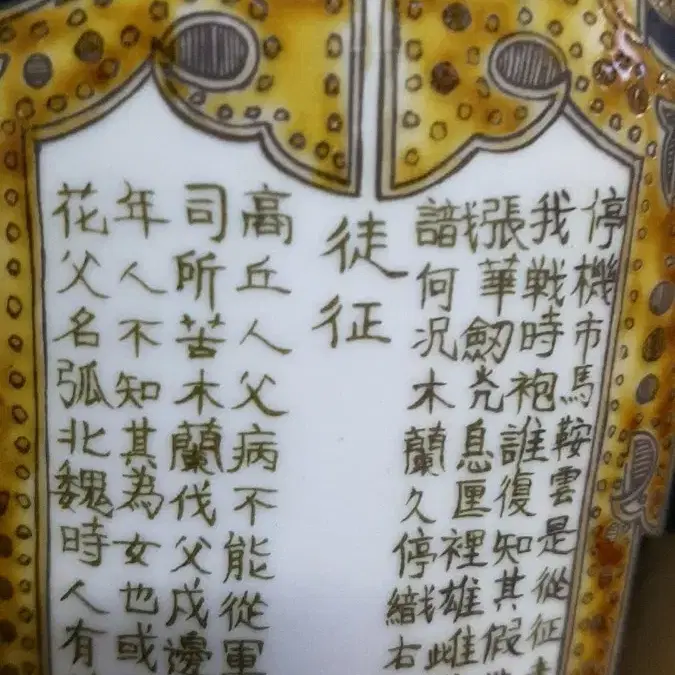 停機市馬鞍雲是從征
我戦時袍誰復知其假
張華劒光息匣裡雄雌
識何況木蘭久停織右
徒征
高丘人父病不能從軍
司所苦木蘭伐父戍邊
年人不知其為女也或
花父名弧北魏時人有